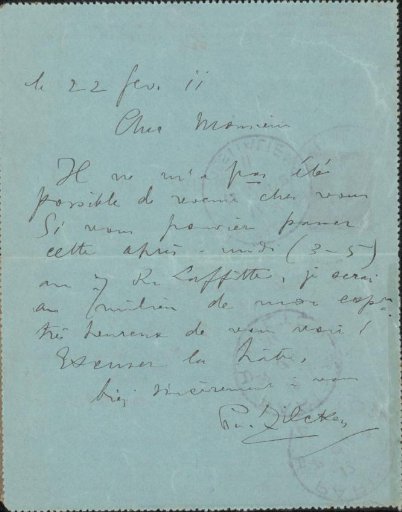 le 22 fev. 11
Cher Monsieur
Il ne m'a pas été
possible de revenir chez vous
Si vous pouviez passer
cette après-midi (3-5)
au 7 R. Laffitte, je serai
au milieu de mon expo
très heureux de vous voir!
Excusez la hâte,
bien sincèrement à vous
Ph. Zilcken